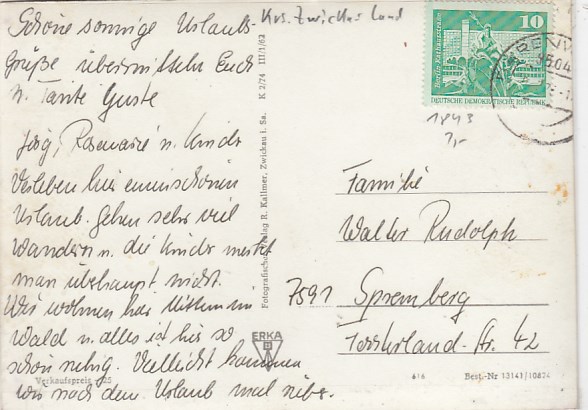 Schöne sonnige Urlaubs-
Grüße übermitteln Euch
u. Tante Guste
Jörg, Rosemarie u. Kinder
Verleben hier einen schönen
Urlaub. Gehen sehr viel
wandern u. die Kinder merkt
man überhaupt nicht.
Wir wohnen hier mitten im
Wald u. alles ist hier so
schön ruhig. Vielleicht kommen
wir nach dem Urlaub mal rüber.
Verkaufspreis -,25
Krs. Zwickau Land
Fotografischer Verlag R. Kallmer, Zwickau i. Sa. K 2/74 III/1/62
ERKA
10
Berlin Rathausstraße
DEUTSCHE DEMOKRATISCHE REPUBLIK
1843
7,-
Familie
Walter Rudolph
7591 Spremberg
Forster Land-Str. 42
616
Best.-Nr 13141/10824